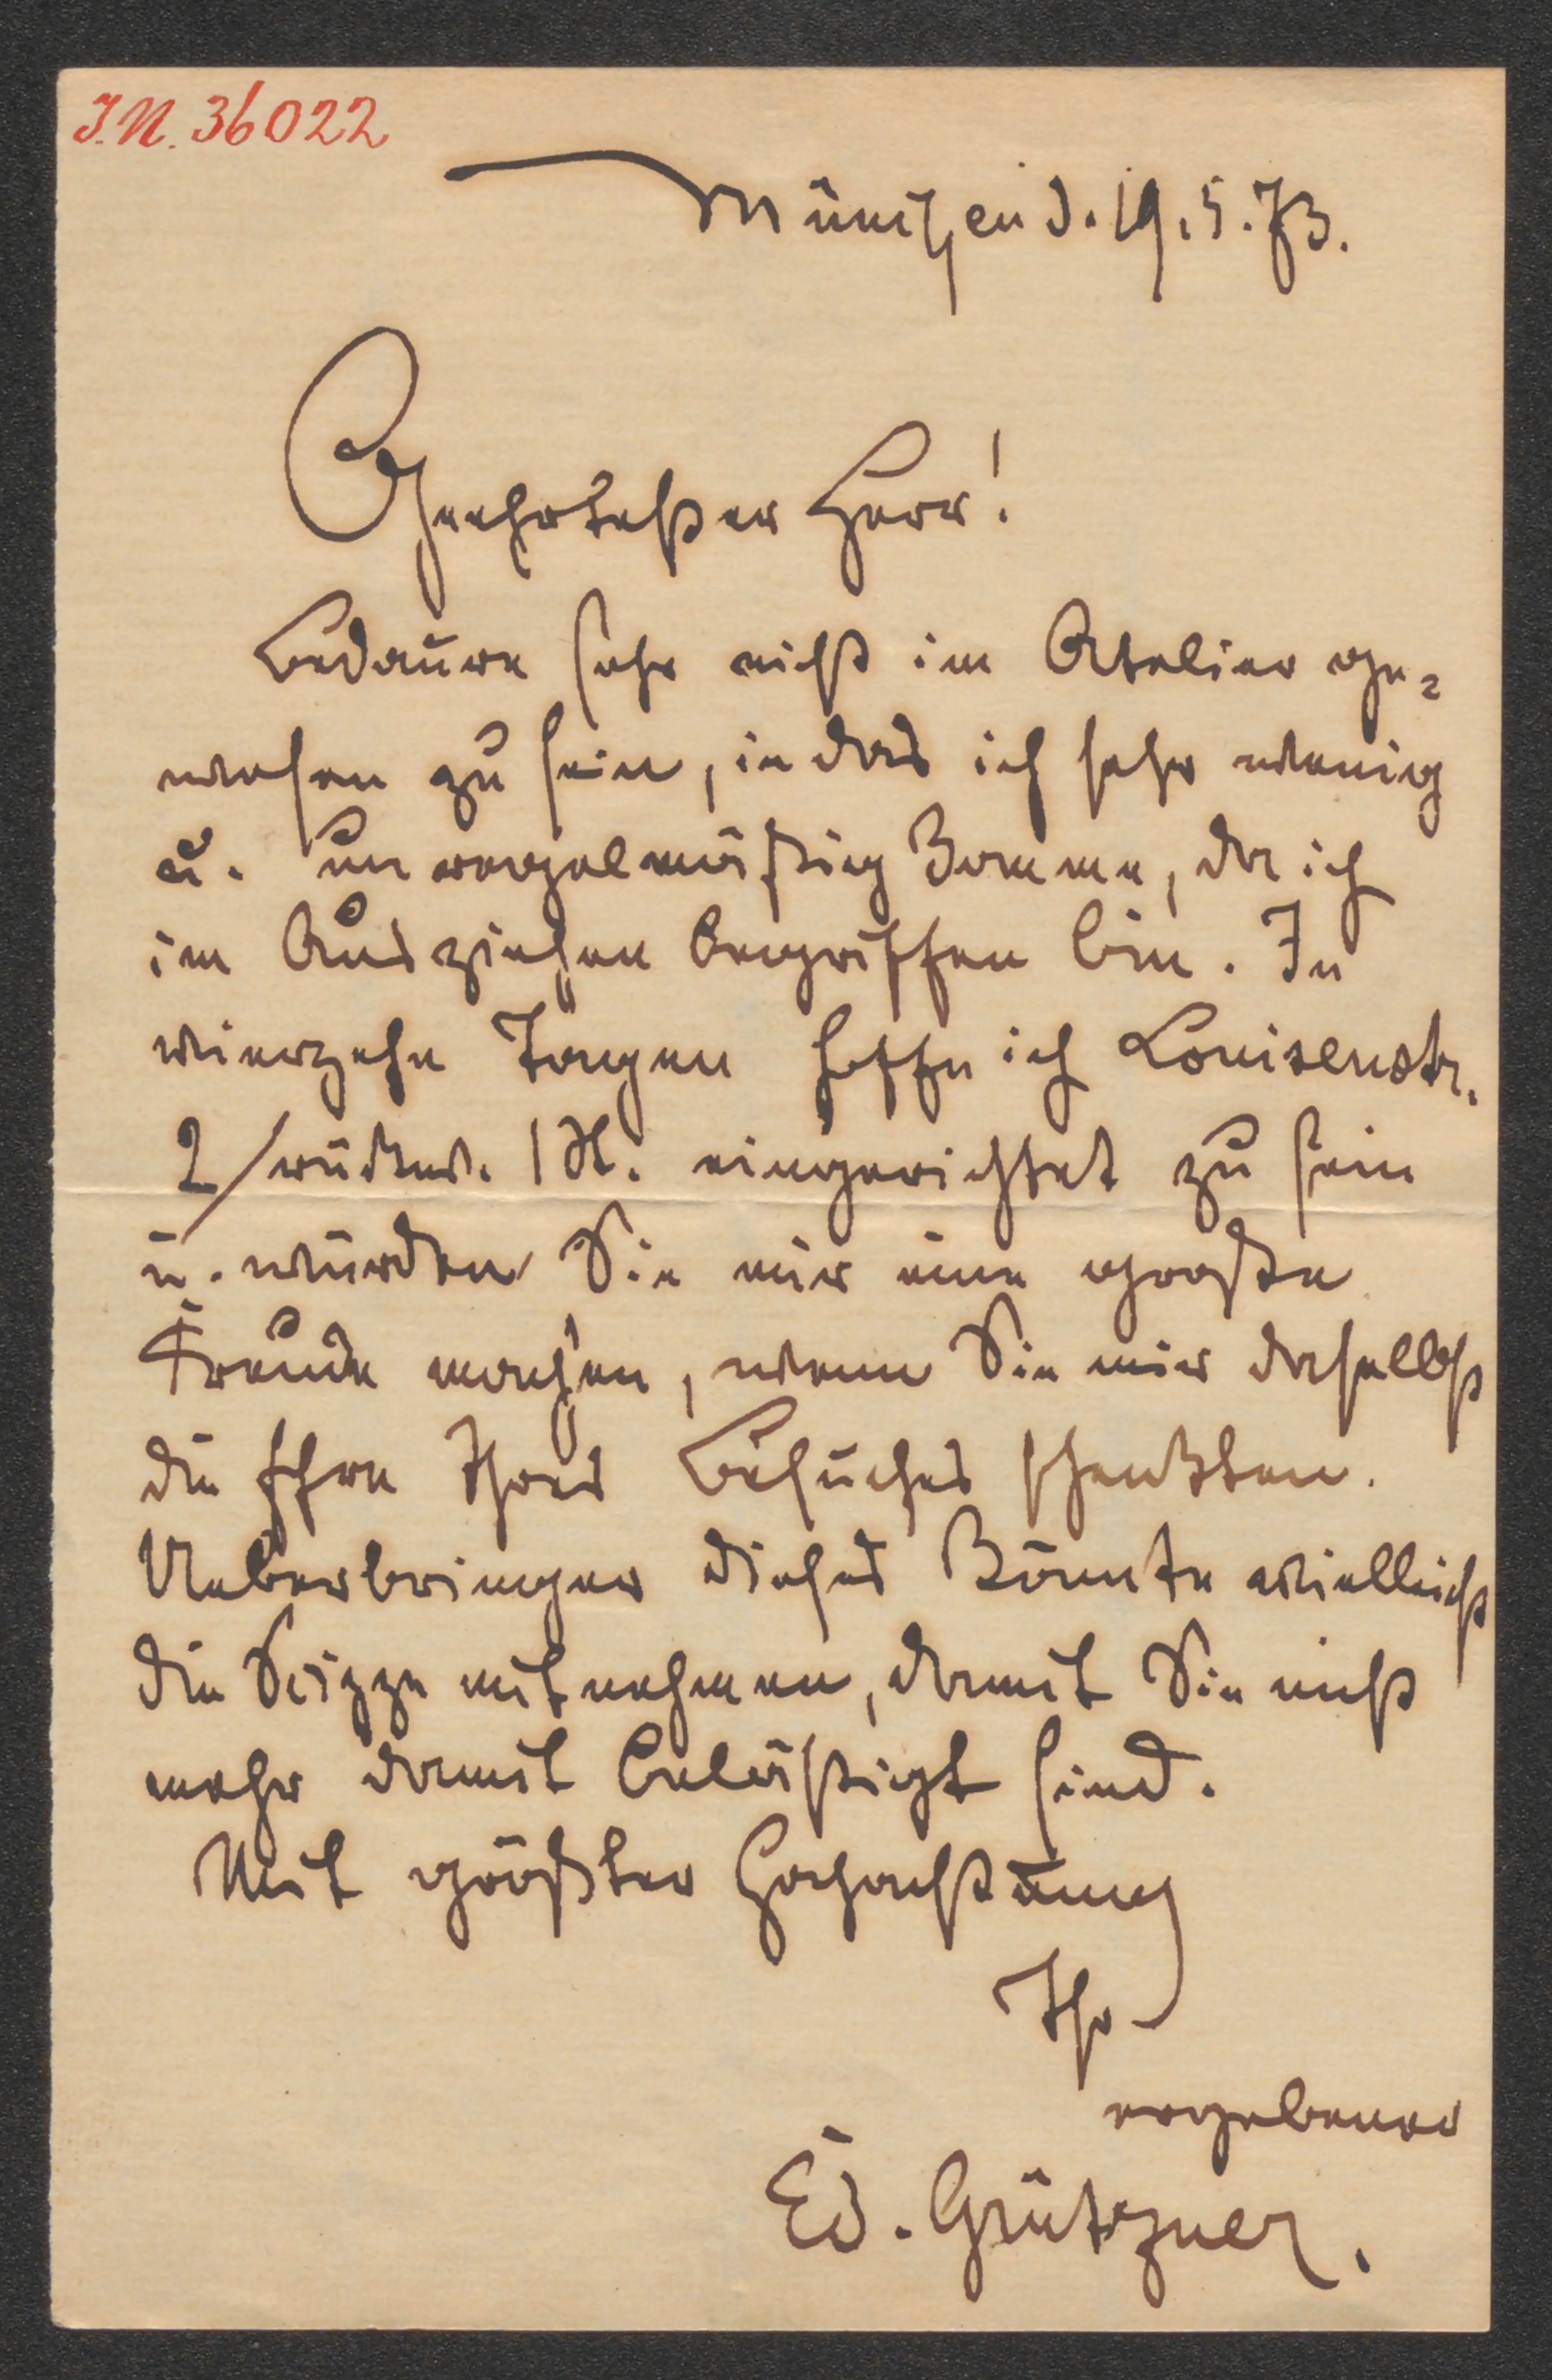 J.N. 36022
München d. 19.5.73.
Geehrtester Herr!
Bedaure sehr nicht im Atelier ge-
wesen zu sein, in das ich sehr wenig
u. unregelmäßig komme, da ich
im Ausziehen begriffen bin. In
vierzehn Tagen hoffe ich Louisenstr.
2/rückw. 1 St. eingerichtet zu sein
u. würden Sie mir eine große
Freude machen, wenn Sie mir daselbst
die Ehre Ihres Besuches schenkten.
Ueberbringer dieses könnte vielleicht
die Scizze mitnehmen, damit Sie nicht
mehr damit belästigt sind.
Mit größter Hochachtung
Ihr
ergebener
Ed. Grützner.